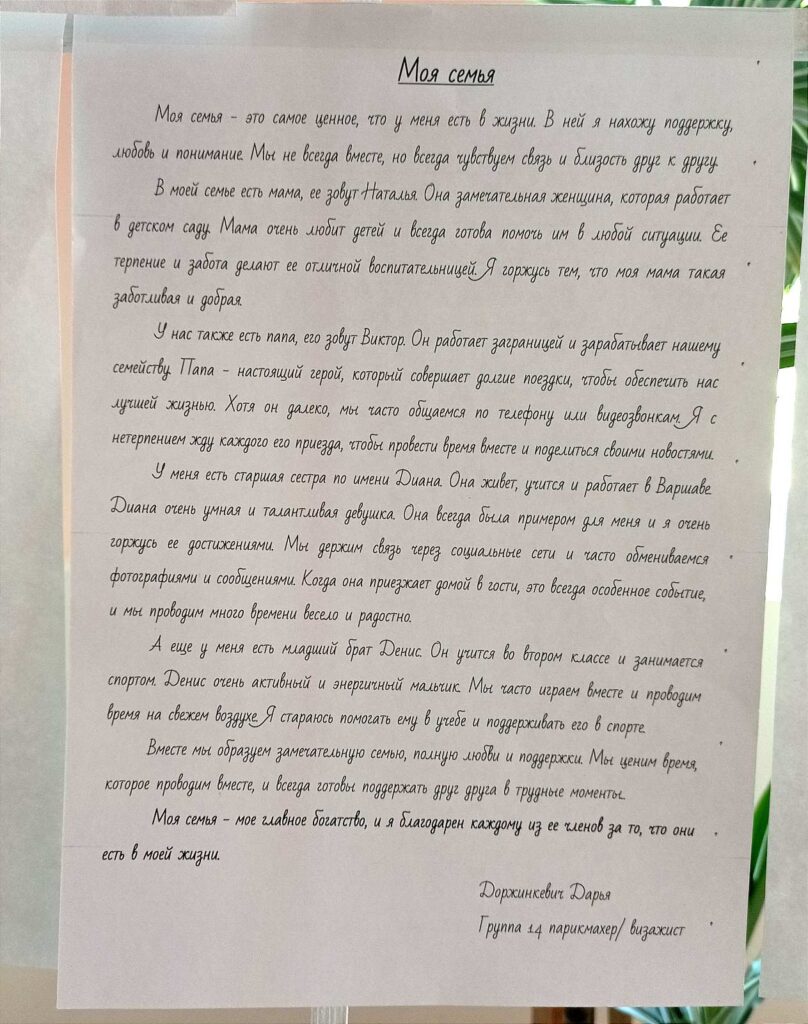 Моя семья
Моя семья - это самое ценное, что у меня есть в жизни. В ней я нахожу поддержку,
любовь и понимание. Мы не всегда вместе, но всегда чувствуем связь и близость друг к другу.
В моей семье есть мама, ее зовут Наталья. Она замечательная женщина, которая работает
в детском саду. Мама очень любит детей и всегда готова помочь им в любой ситуации. Ее
терпение и забота делают ее отличной воспитательницей. Я горжусь тем, что моя мама такая
заботливая и добрая.
У нас также есть папа, его зовут Виктор. Он работает заграницей и зарабатывает нашему
семейству. Папа - настоящий герой, который совершает долгие поездки, чтобы обеспечить нас
лучшей жизнью. Хотя он далеко, мы часто общаемся по телефону или видеозвонкам. Я с
нетерпением жду каждого его приезда, чтобы провести время вместе и поделиться своими новостями.
У меня есть старшая сестра по имени Диана. Она живет, учится и работает в Варшаве.
Диана очень умная и талантливая девушка. Она всегда была примером для меня и я очень
горжусь ее достижениями. Мы держим связь через социальные сети и часто обмениваемся
фотографиями и сообщениями. Когда она приезжает домой в гости, это всегда особенное событие,
и мы проводим много времени весело и радостно.
А еще у меня есть младший брат Денис. Он учится во втором классе и занимается
спортом. Денис очень активный и энергичный мальчик. Мы часто играем вместе и проводим
время на свежем воздухе. Я стараюсь помогать ему в учебе и поддерживать его в спорте.
Вместе мы образуем замечательную семью, полную любви и поддержки. Мы ценим время,
которое проводим вместе, и всегда готовы поддержать друг друга в трудные моменты.
Моя семья - мое главное богатство, и я благодарен каждому из ее членов за то, что они
есть в моей жизни.
Доржинкевич Дарья
Группа 14 парикмахер/ визажист